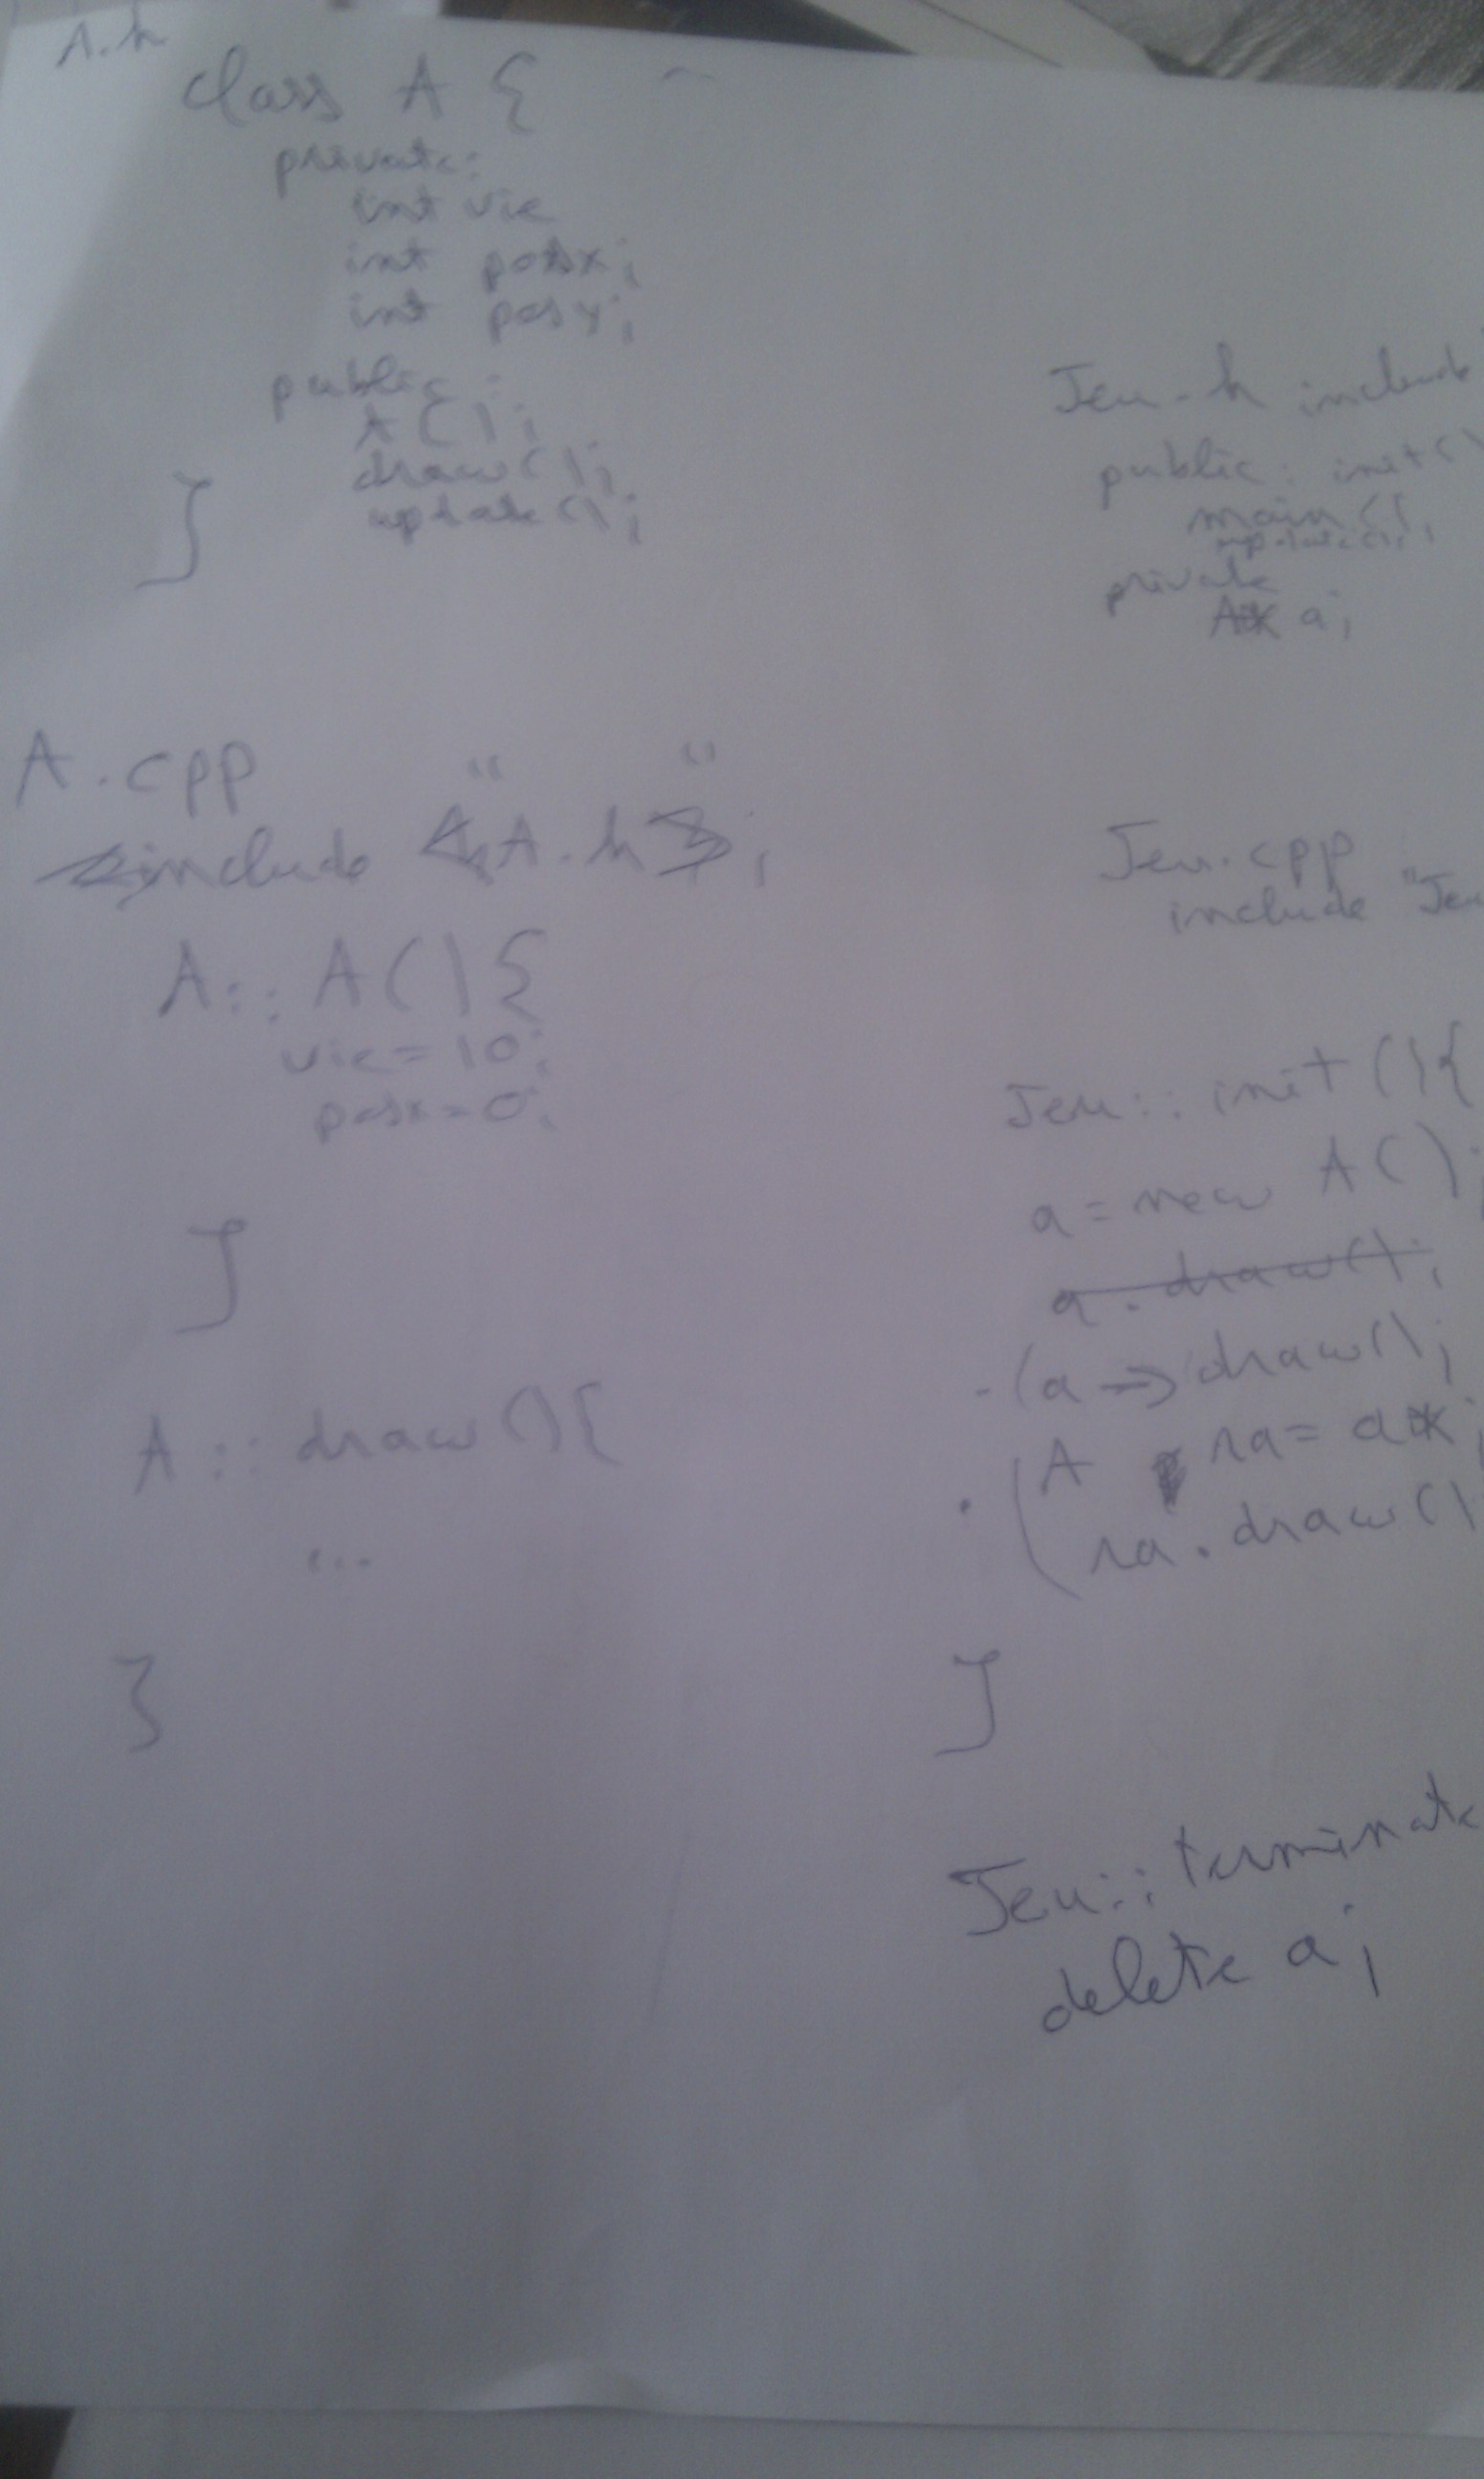 A.h
class A {
private:
int vie
int posx;
int posy;
public:
A();
draw();
update();
}
A.cpp
include "A.h";
A::A(){
vie=10;
posx=0;
}
A::draw(){
...
}
Jeu.h include
public: init()
main();
update();
private
A* a;
Jeu.cpp
include "Jeu
Jeu::init(){
a=new A();
a.draw();
-(a->draw();
A ra= a*;
ra.draw()
}
Jeu::terminate
delete a;